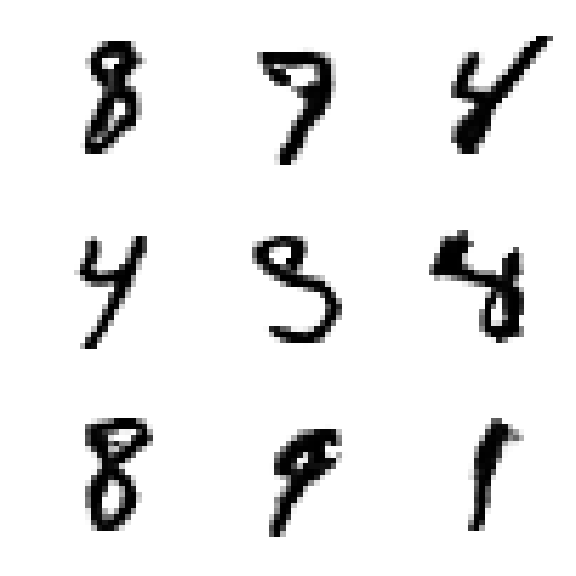 8 4
4 5 8
8 9 1